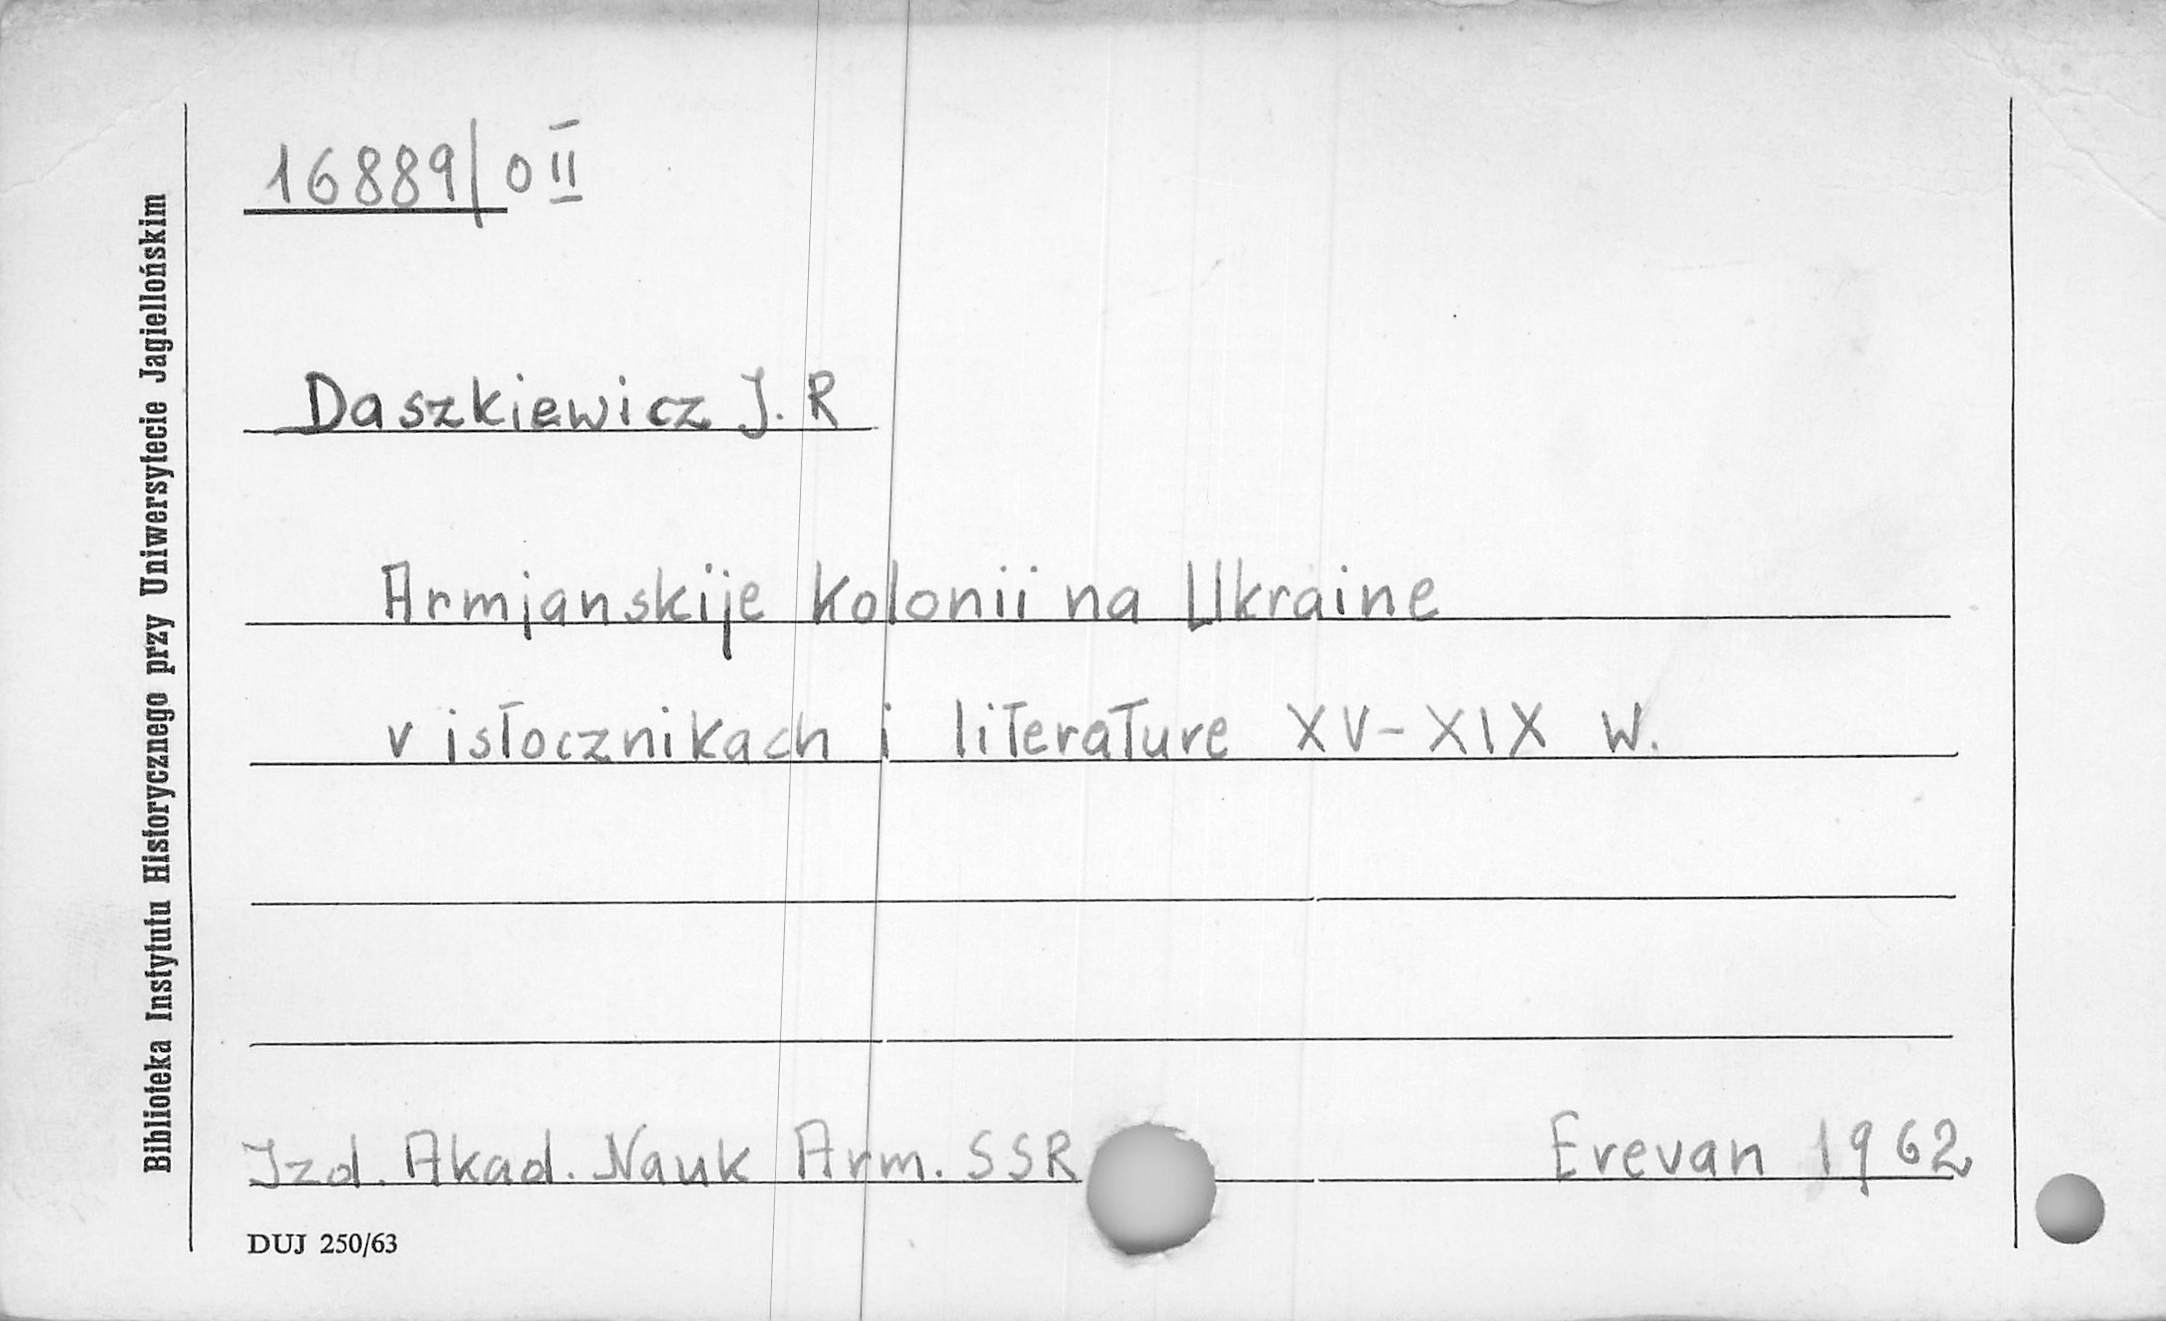 16889/0 II
Daszkiewicz J. R
Armjanskije kolonii na Ukraine
v istocznikach i literature XV-XIX w.
Izd. Akad. Nauk Arm. SSR Erevan 1962
DUJ 250/63
Biblioteka Instytutu Historycznego przy Uniwersytecie Jagiellońskim